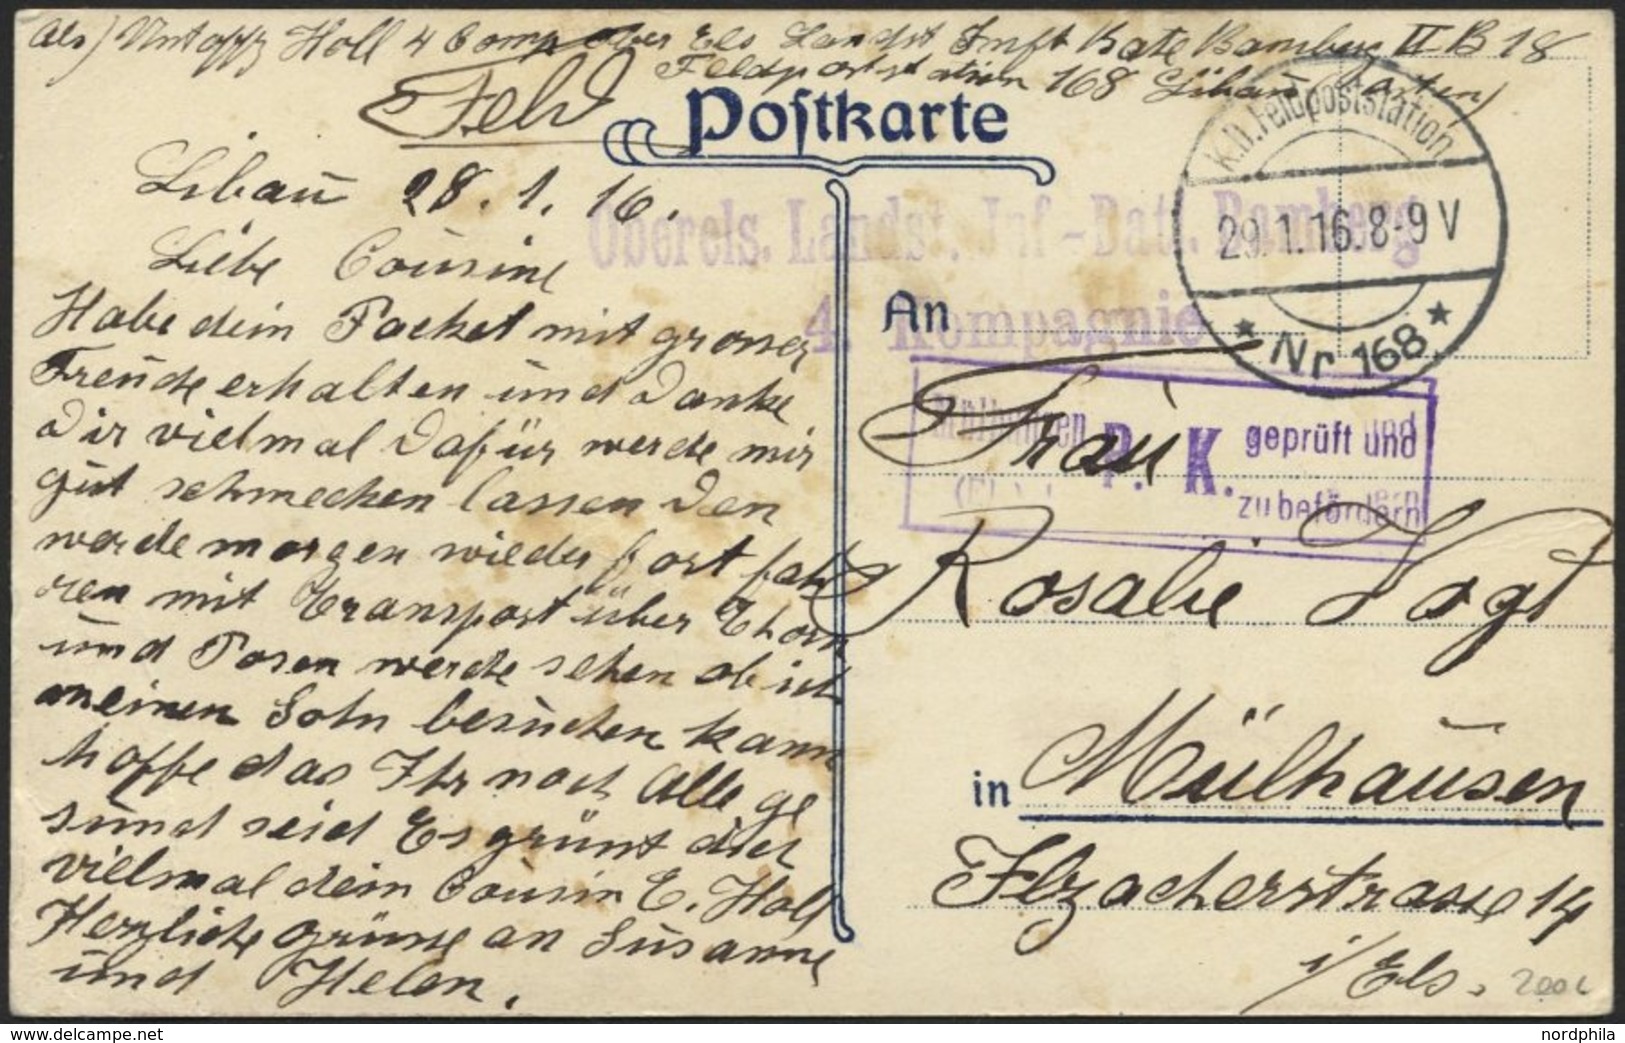 Abs) Untoffz Holl 4 Comp Ober Els Landst Inft Bate Bamberg II B 18
Feldpoststation 168 Libau (Osten)
Feld
Postkarte
K.D. Feldpoststation
29.1.16. 8-9 V
* Nr 168 *
Oberels. Landst. Inf.-Batl. Bamberg
4. Kompagnie
Mülhausen P. K. geprüft und
zu befördern
Libau 28. 1. 16.
Liebe Cousine
Habe dein Packet mit grosser
Freude erhalten und Danke
Dir vielmal Dafür werde mir
gut schmecken lassen Den
werde morgen wieder fort fah
ren mit Transport über Thorn
und Posen werde sehen ob ich
meinen Sohn besuchen kann
hoffe das Ihr noch Alle ge
sund seid Es grünst dich
vielmal dein Cousin E. Holl
Herzliche Grüsse an Susanne
und Helen.
An
Frau
Rosalie Vogt
in Mülhausen
Ilzacherstrasse 14
i/Els.
nordphila